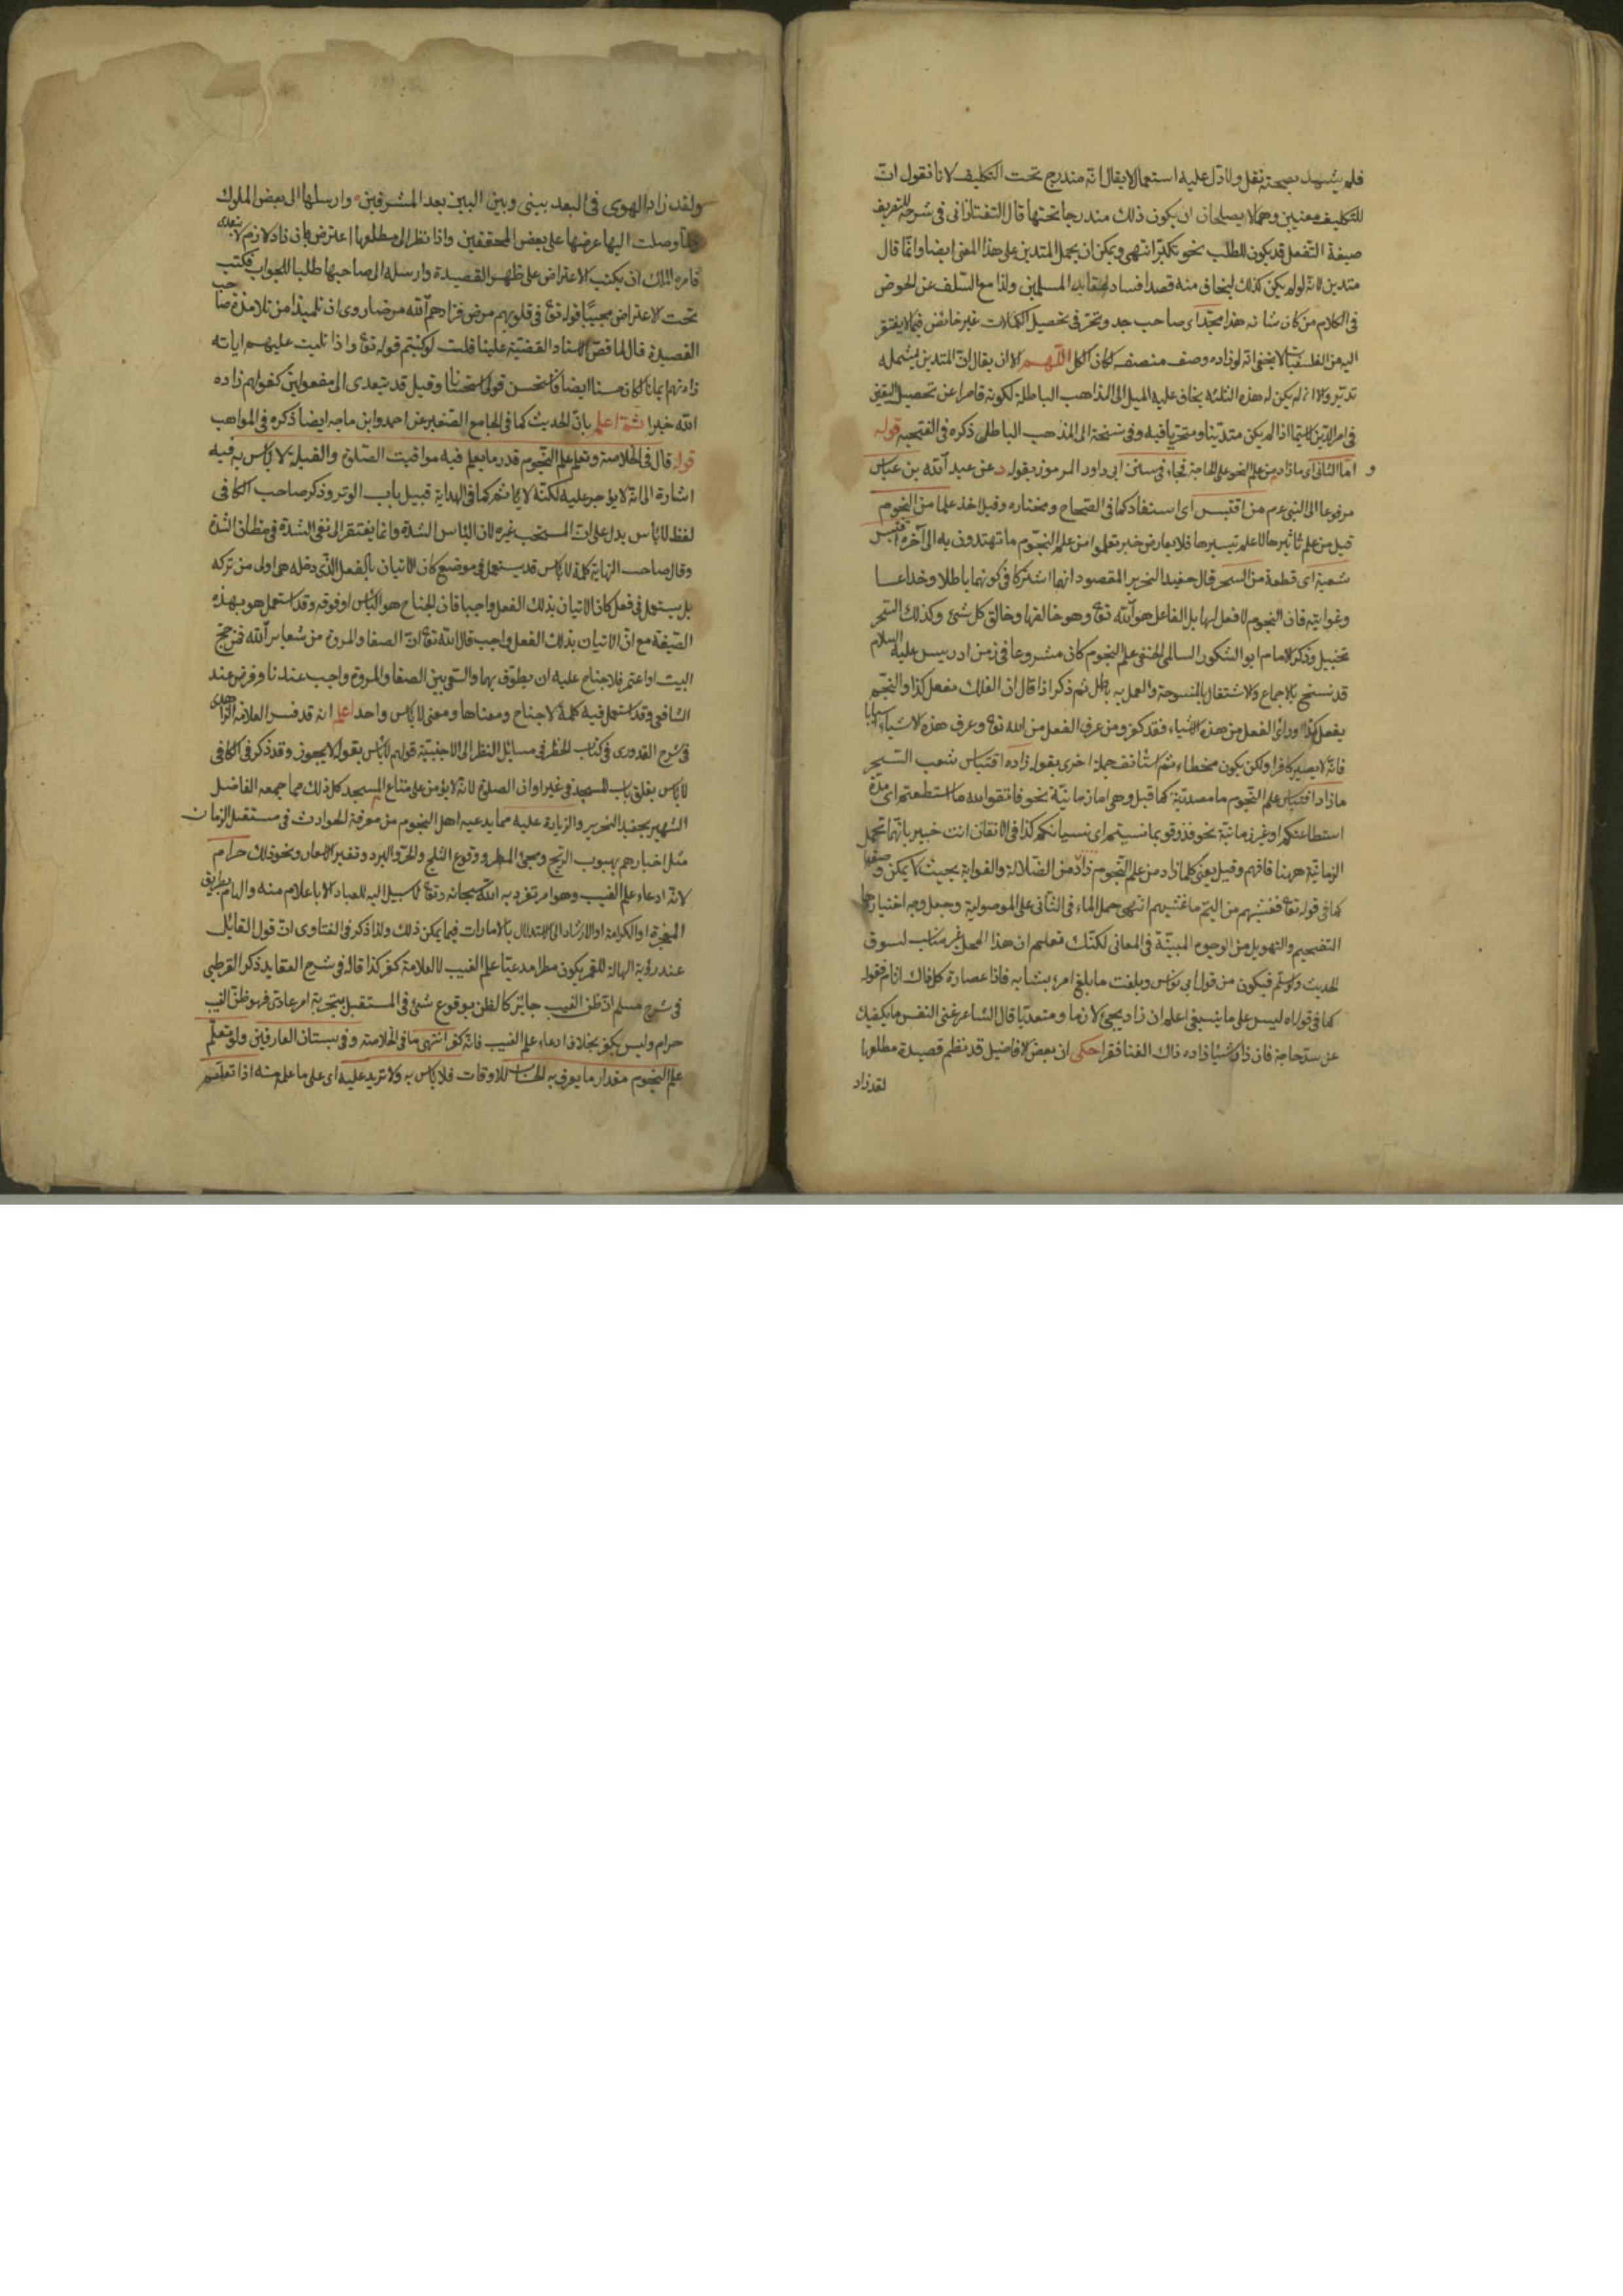 فلم يشهد بصحته نقل ولا دل عليه استعمال لا يقال انه مندرج تحت التكليف لانا نقول ان
للتكليف معنيين وهما لا يصلحان ان يكون ذلك مندرجا تحتها قال التفتازانى فى شرحه للتعريف
صيغة التفعل قد يكون للطلب نحو تكبّر انتهى ويمكن ان يحمل المتدين على هذا المعنى ايضا وانما قال
متدين لانه لو لم يكن كذلك ليخاف منه قصد افساد عقايد المسلمين ولذا منع السلف عن الخوض
فى الكلام من كان شانه هذا مجدّا اى صاحب جد وتحر فى تحصيل الكمالات غير خائض فيما لا يفتقر
اليه من الفلسفيات لا يخفى انه لو زاده وصف منصف لكان اكمل اللهم الا ان يقال ان المتدين يشمله
تدبر ولا انه لم يكن له هذه الثلثة يخاف عليه الميل الى المذاهب الباطلة لكونه قاصرا عن تحصيل اليقين
فى امر الدين لا سيما اذا لم يكن متدينا ومتحريا فيه وفى نسخة الى المذهب الباطل ذكره فى الفتحية قوله
و اما الثانى اى ما زاد من علم النحو على الحاجة فجاء فى سنن ابى داود المرموز بقوله د عن عبد الله بن عباس
مرفوعا الى النبى عم من اقتبس اى استفاد كما فى الصحاح ومختاره وقيل اخذ علما من النجوم
قيل من علم تأثيرها لا علم تسييرها فلا يعارض خبر تعلموا من علم النجوم ما تهتدون به الى آخره اقتبس
شعبة اى قطعة من السحر قال حفيد النحرير المقصود انهما اشتركا فى كونهما باطلا وخداعا
وغواية فان النجوم لا فعل لها بل الفاعل هو الله تع وهو خالقها وخالق كل شئ وكذلك السحر
تخييل وذكر الامام ابو الشكور السالمى الحنفى علم النجوم كان مشروعا فى زمن ادريس عليه السلام
قد نسخ بالاجماع والاشتغال بالمنسوخة والعمل به باطل ثم ذكر اذا قال ان الفلك تفعل كذا والنجم
يفعل كذا وراى الفعل من هذه الاشياء فقد كفر ومن عرف الفعل من الله تع وعرف هذه الاشياء اسبابا
فانه لا يصير كافرا ولكن يكون مخطئا ثم استانف جملة اخرى بقوله زاده اقتباس شعب السحر
ما زاد اقتباس علم النجوم ما مصدرية كما قبل وهى اما زمانية نحو فاتقوا الله ما استطعتم اى مدة
استطاعتكم او غير زمانية نحو فذوقوا بما نسيتم اى نسيانكم كذا فى الاتقان انت خبير بانها تحمل
الزمانية ههنا فافهم وقيل يعنى كلما زاد من علم النجوم زاد من الضلالة والغواية بحيث لا يمكن وصفها
كما فى قوله تع فغشيهم من اليم ما غشيهم انتهى حمل الماء فى الثانى على الموصولية وجعل وجه اختيارها
التفخيم والتهويل من الوجوه المبينة فى المعانى لكنك تعلم ان هذا المحمل غير مناسب لسوق
الحديث ولو سلم فيكون من قول ابى نواس وبلغت ما بلغ امرؤ بشبابه فاذا عصارة كل ذاك اثام فقوله
كما فى قوله ليس على ما ينبغى اعلم ان زاد يجئ لازما ومتعديا قال الشاعر غنى النفس ما يكفيك
عن سد حاجة فان زاد شيئا زاده ذاك الغنا فقرا حكى ان بعض الافاضل قد نظم قصيدة مطلعها
لقد زاد
ولقد زاد الهوى فى البعد بينى وبين البين بعد المشرقين وارسلها الى بعض الملوك
ولما وصلت اليها عرضها على بعض المحققين واذا نظر الى مطلعها اعترض بان زاد لازم لا يتعدى
فامره الملك ان يكتب الاعتراض على ظهر القصيدة وارسله الى صاحبها طلبا للجواب فكتب
تحت الاعتراض مجيبا قوله تع فى قلوبهم مرض فزادهم الله مرضا روى ان تلميذا من تلامذة صاحب
القصيدة قال لما قص الاستاد القضية علينا قلت لو كتبتم قوله تع واذا تليت عليهم اياته
زادتهم ايمانا لكان حسنا ايضا فاستحسن قولى استحسانا وقيل قد يتعدى الى مفعولين كقولهم زاده
الله خيرا ثم اعلم بان الحديث كما فى الجامع الصغير عن احمد وابن ماجه ايضا ذكره فى المواهب
قوله قال فى الخلاصة وتعلم علم النجوم قدر ما يعلم فيه مواقيت الصلوة والقبلة لا بأس به فيه
اشارة الى انه لا يؤجر عليه لكنه لا يأثم كما فى الهداية قبيل باب الوتر وذكر صاحب الكافى
لفظ لا بأس يدل على ان المستحب غيره لان البأس الشدة وانما يفتقر الى نفى الشدة فى مظان الشدة
وقال صاحب النهاية كلمة لا بأس قد يستعمل فى موضع كان الاتيان بالفعل الذى دخله هى اولى من تركه
بل يستعمل فى فعل كان الاتيان بذلك الفعل واجبا فان الجناح هو البأس او فوقه وقد استعمل هو بهذه
الصيغة مع ان الاتيان بذلك الفعل واجب قال الله تع ان الصفا والمروة من شعاير الله فمن حج
البيت او اعتمر فلا جناح عليه ان يطوف بهما والسعى بين الصفا والمروة واجب عندنا وفرض عند
الشافعى وقد استعمل فيه كلمة لا جناح ومعناها ومعنى لا بأس واحد اعلم انه قد فسر العلامة الزاهدى
فى شرح القدورى فى كتاب الحظر فى مسائل النظر الى الاجنبية قولهم لا بأس بقوله لا يجوز وقد ذكر فى الكافى
لا بأس بغلق باب المسجد فى غير اوان الصلوة لانه لا يؤمن على متاع المسجد كل ذلك مما جمعه الفاضل
الشهير بحفيد النحرير والزيادة عليه مما يدعيه اهل النجوم من معرفة الحوادث فى مستقبل الزمان
مثل اخبارهم بهبوب الريح ومجئ المطر ووقوع الثلج والحر والبرد وتغير الاسعار ونحو ذلك حرام
لانه ادعاء علم الغيب وهو امر تفرد به الله سبحانه وتع لا سبيل اليه للعباد الا باعلام منه والهام بطريق
المعجزة او الكرامة او الارشاد الى الاستدلال بالامارات فيما يمكن ذلك ولذا ذكر فى الفتاوى ان قول القايل
عند رؤية الهالة للقمر يكون مطرا مدعيا علم الغيب لا لعلامة كفر كذا قاله فى شرح العقايد ذكر القرطبى
فى شرح مسلم ان ظن الغيب جائز كالظن بوقوع شئ فى المستقبل بتجربة امر عادى فهو ظن الغيب
حرام وليس بكفر بخلاف ادعاء علم الغيب فانه كفر انتهى ما فى الخلاصة وفى بستان العارفين ولو تعلم
علم النجوم مقدار ما يعرف به الحساب للاوقات فلا بأس به ولا تزيد عليه اى على ما علم منه اذا تعلم